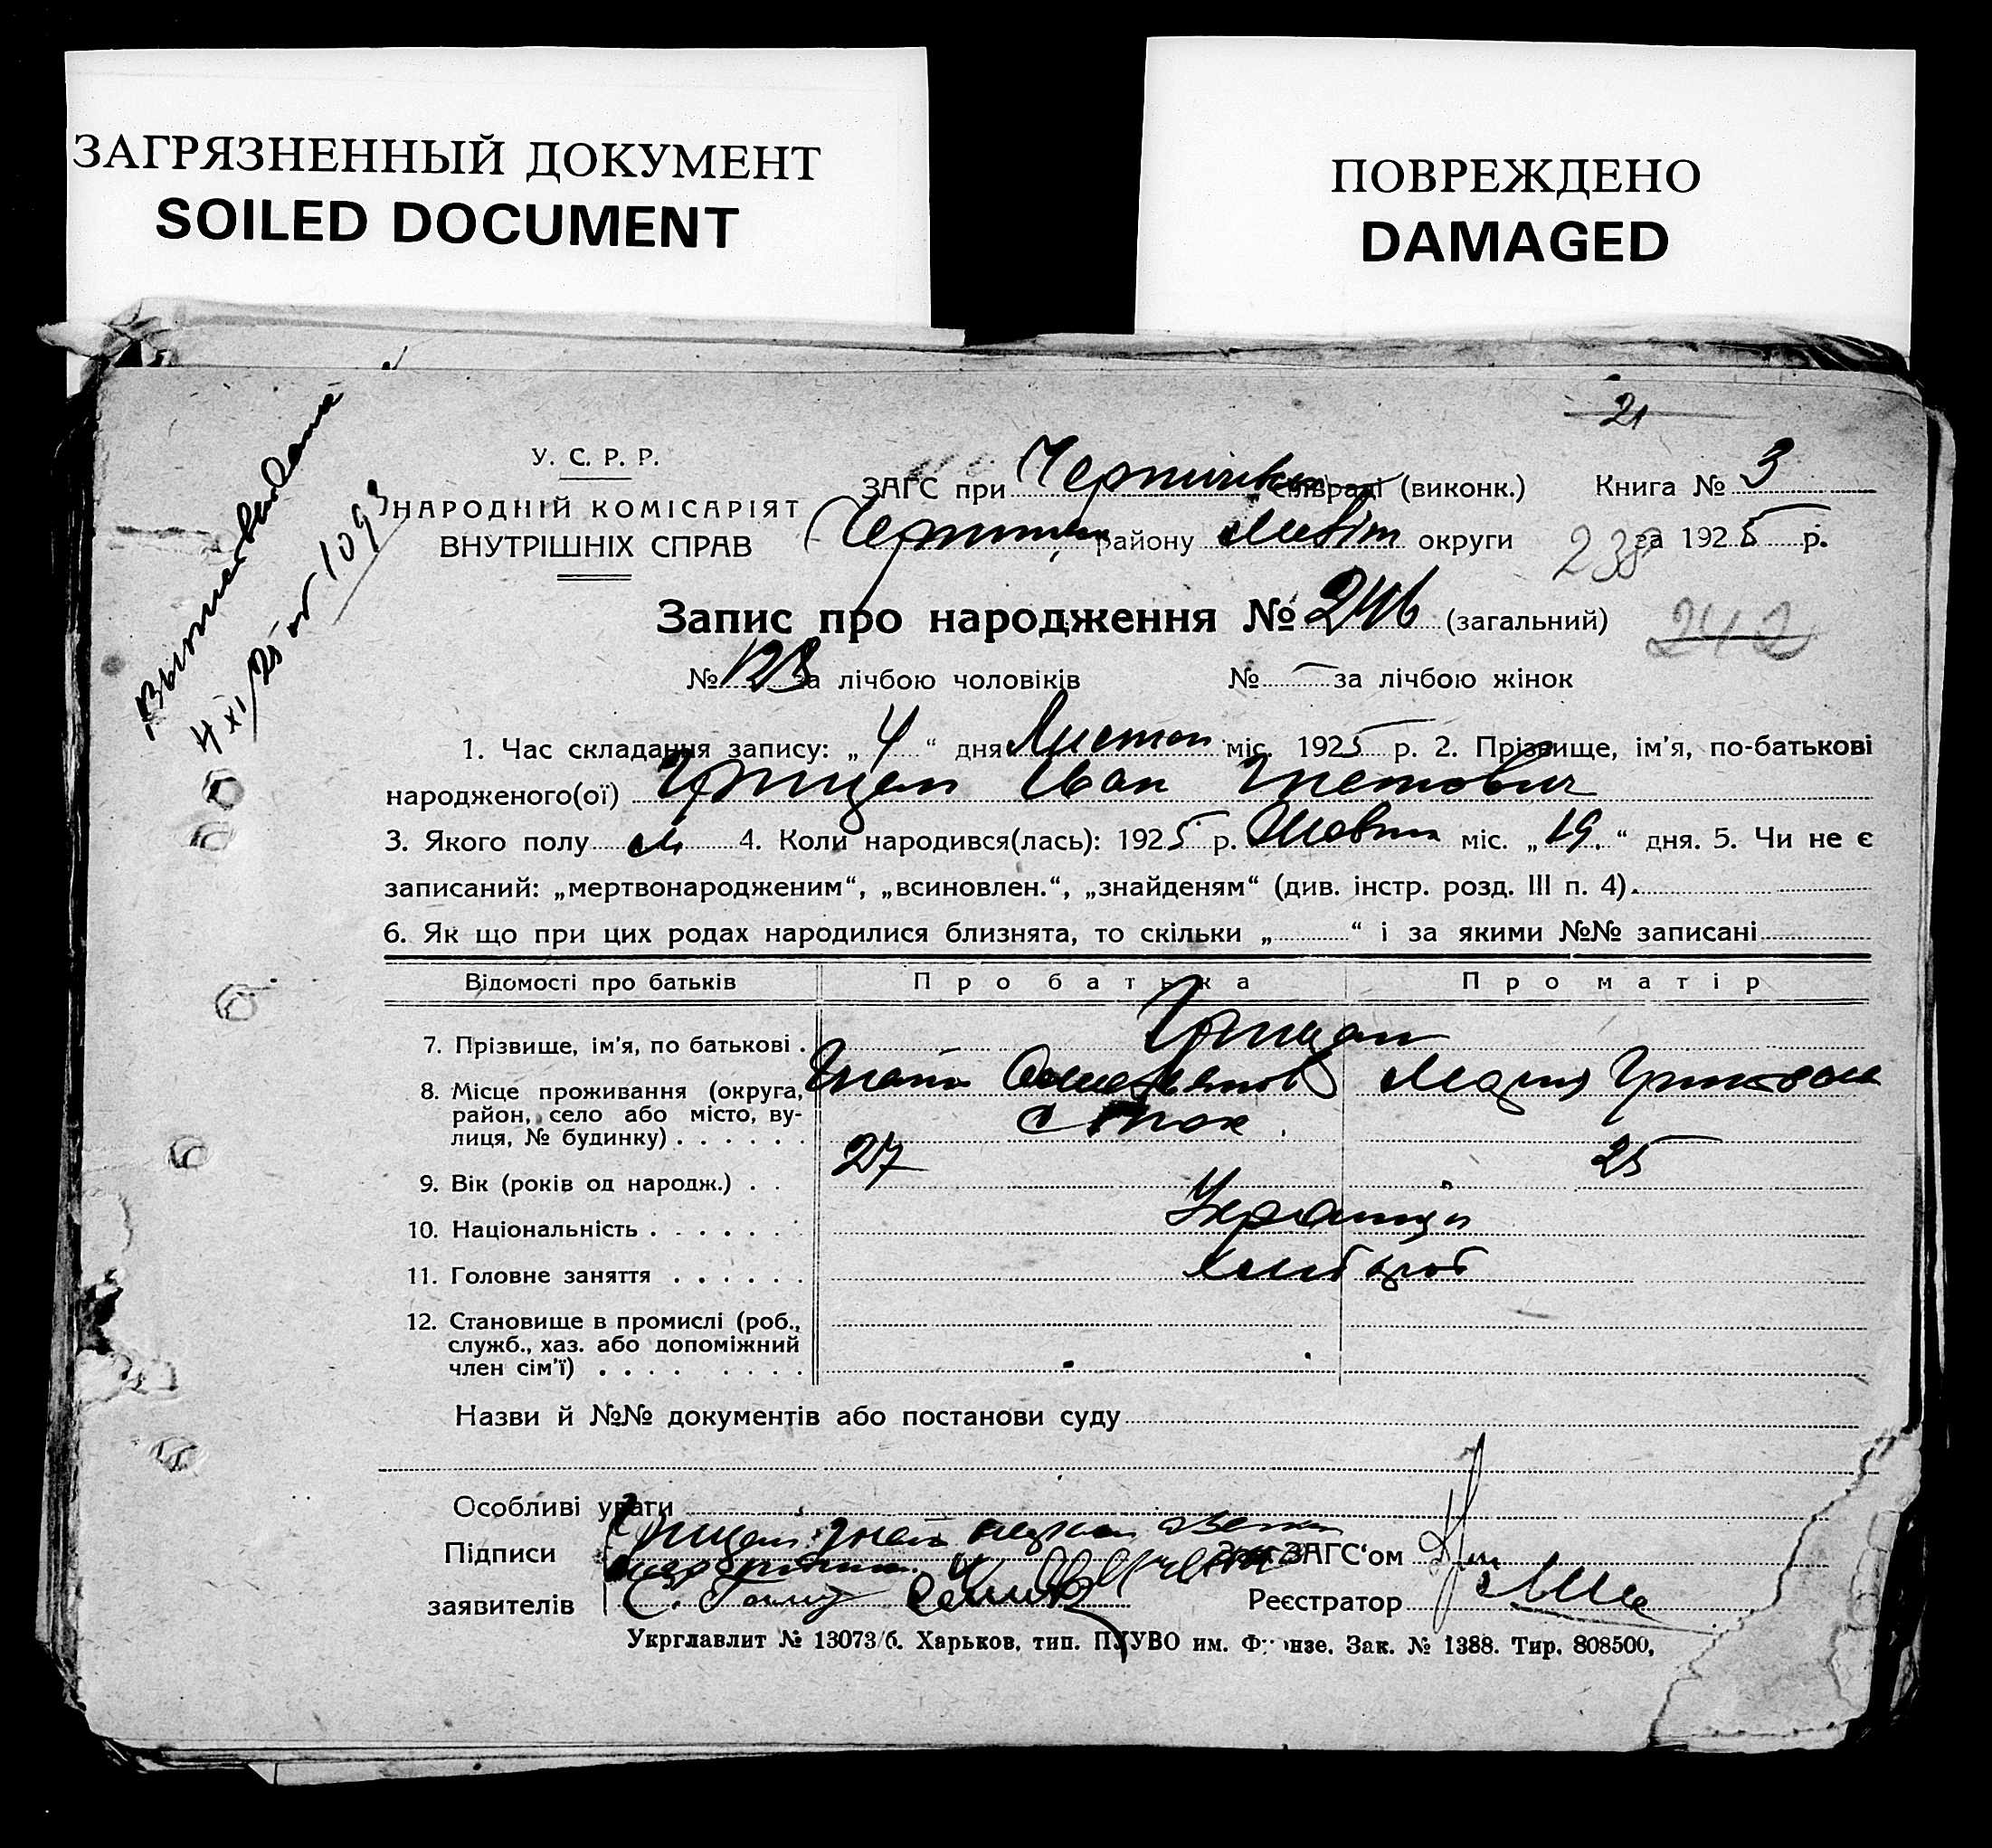 ЗАГРЯЗНЕННЫЙ ДОКУМЕНТ
SOILED DOCUMENT
ПОВРЕЖДЕНО
DAMAGED
21
У. С. Р. Р.
НАРОДНІЙ КОМІСАРІЯТ
ВНУТРІШНІХ СПРАВ
ЗАГС при сільраді (виконк.) Книга № 3
району округи за 1925 р.
238
Запис про народження № 246 (загальний)
242
№ 128 за лічбою чоловіків № за лічбою жінок
1. Час складання запису: „ 4 “ дня Листоп міс. 1925 р. 2. Прізвище, ім’я, по-батькові
народженого(ої) Грицан Іван Гнатович
3. Якого полу м 4. Коли народився(лась): 1925 р. Жовтн міс. „ 19. “ дня. 5. Чи не є
записаний: „мертвонародженим“, „всиновлен.“, „знайденям“ (див. інстр. розд. III п. 4).
6. Як що при цих родах народилися близнята, то скільки „ “ і за якими №№ записані
Відомості про батьків Про батька Про матір
7. Прізвище, ім’я, по батькові . Грицан
8. Місце проживання (округа, Гнат Мария
район, село або місто, ву-
лиця, № будинку) . . . . . .
9. Вік (років од народж.) . . 27 25
10. Національність . . . . . . Українці
11. Головне заняття . . . . . . хлібороб
12. Становище в промислі (роб.,
служб., хаз. або допоміжний
член сім’ї) . . . . . . . .
Назви й №№ документів або постанови суду
Особливі уваги
Підписи Грицан Гнат
Зав. ЗАГС‘ом
заявителів Реєстратор
Укрглавлит № 13073/б. Харьков, тип. ПУУВО им. Фрунзе. Зак. № 1388. Тир. 808500,